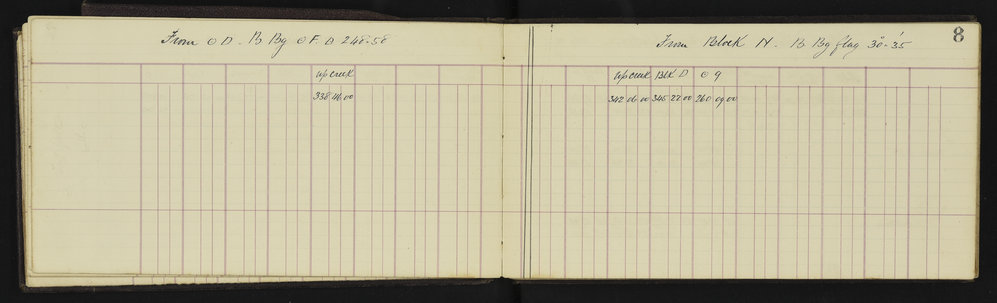 From ⊙ D. B By ⊙ F. D 248-50
up creek
338 46 00
8
From Block N. B By flag 30-35
up creek Blk D ⊙ 9
342 06 00 345 22 00 260 09 00